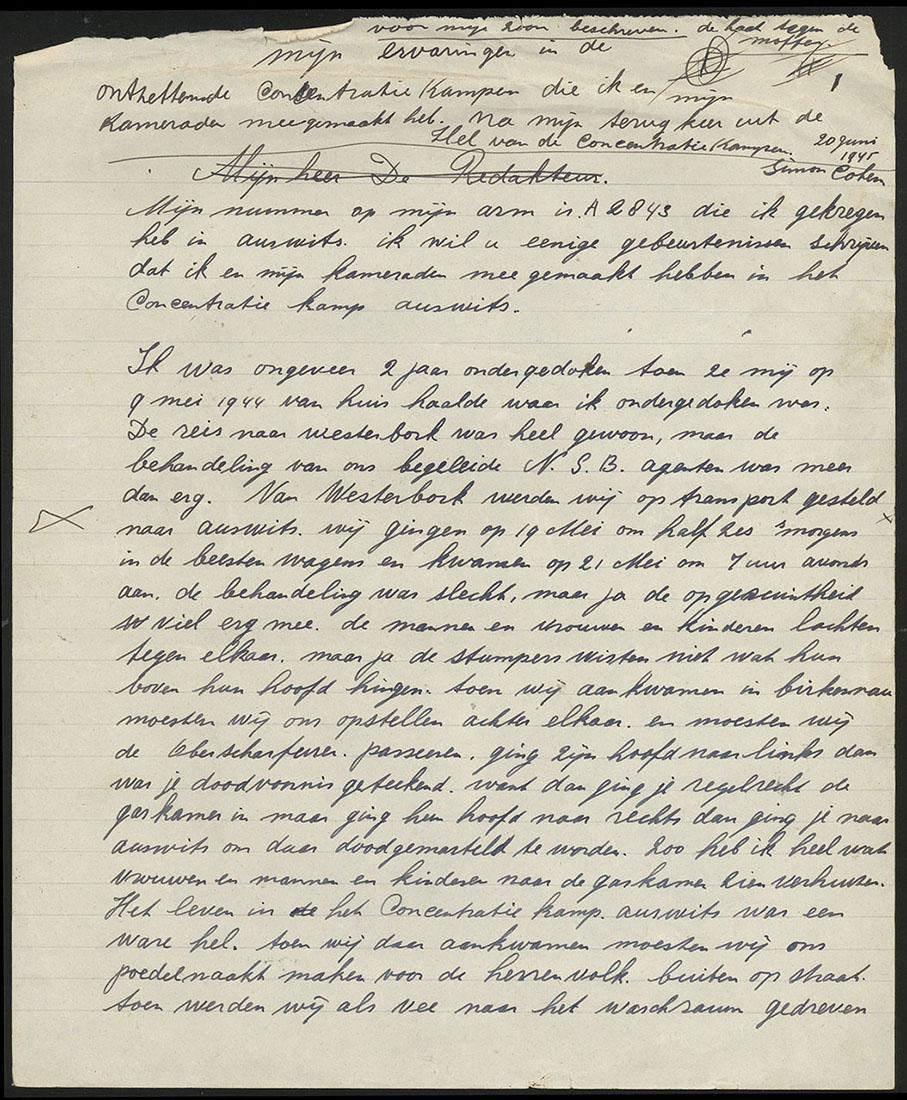 voor mijn zoon beschreven. de haat tegen de
moffen.
mijn ervaringen in de
1
ontzettende Concentratie Kampen die ik en mijn
Kameraden meegemaakt heb. na mijn terugkeer uit de
Hel van de Concentratie Kampen. 20 Juni
1945
Simon Cohen
Mijnheer De Redakteur.
Mijn nummer op mijn arm is. A 2843 die ik gekregen
heb in auswits. ik wil u eenige gebeurtenissen schrijven
dat ik en mijn kameraden mee gemaakt hebben in het
Concentratie kamp auswits.
Ik was ongeveer 2 jaar ondergedoken toen ze mij op
9 mei 1944 van huis haalde waar ik ondergedoken was.
De reis naar westerbork was heel gewoon, maar de
behandeling van ons begeleide N.S.B. agenten was meer
dan erg. Van Westerbork werden wij op transport gesteld
naar auswits. wij gingen op 19 Mei om half zes 's morgens
in de beesten wagens en kwamen op 21 Mei om 7 uur avonds
aan. de behandeling was slecht, maar ja de opgewintheid
viel erg mee. de mannen en vrouwen en kinderen lachten
tegen elkaar. maar ja de stumpers wisten niet wat hun
boven hun hoofd hingen. toen wij aankwamen in birkennau
moesten wij ons opstellen achter elkaar. en moesten wij
de Oberscharfeurer. passeeren. ging zijn hoofd naar links dan
was je doodvonnis geteekend. want dan ging je regelrecht de
gaskamer in maar ging hun hoofd naar rechts dan ging je naar
auswits om daar doodgemarteld te worden. zoo heb ik heel wat
vrouwen en mannen en kinderen naar de gaskamer zien verhuizen.
Het leven in de het Concentratie kamp. auswits was een
ware hel. toen wij daar aankwamen moesten wij ons
poedelnaakt maken voor de herrenvolk. buiten op straat.
toen werden wij als vee naar het waschraum gedreven